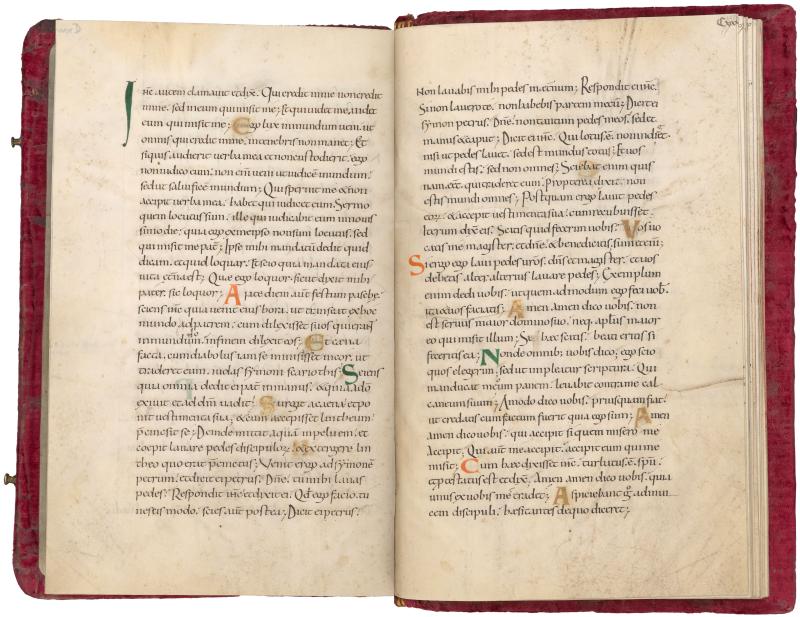 Ihc autem clamavit et dix̄. Qui credit inme non credit
inme. sed ineum qui misit me; Et qui videt me. videt
eum qui misit me; Ego lux inmundum veni. ut
omnis qui credit inme. intenebris non maneat; Et
siquis audierit verba mea et noncustodierit. ego
non iudico eum. non eni veni ut iudicē mundum.
sed ut salvificē mundum; Qui spernit me & non
accipit verba mea. habet qui iudicet eum. Sermo
quem locutus sum. ille qui iudicabit eum innovis
simo die; quia ego exmeipso non sum locutus. sed
qui misit me pat̄; Ipse mihi mandatū dedit quid
dicam. et quid loquar. Et scio quia mandatū eius
vita eterna est; Quae ego loquor. sicut dixit mihi
pater. sic loquor; Ante diem aut̄ festum pasche.
sciens ihc̄ quia venit eius hora. ut transeat exhoc
mundo adpatrem. cum dilexisset suos qui erant̄
inmundo. infinem dilexit eos; Et cena
facta. cum diabolus iam se misisset incor. ut
traderet eum. iudas symonis scariothis; Sciens
quia omnia dedit ei pat̄ inmanus. & quia ado
exivit et ad dm̄ vadit. Surgit acena. et po
nit vestimenta sua. & cum accepisset lintheum
p̄cinxit se; Deinde mittit aquā inpelvem. et
coepit lavare pedes discipulor. & extergere lin
theo quo erat p̄cinctus; Venit ergo ad symonē
petrum. et dixit ei petrus. Dn̄e. tu mihi lavas
pedes. Respondit ihc̄ et dixit ei. Qd ego facio. tu
nescis modo. scies. aut̄ postea; Dicit ei petrus.
Non lavabis mihi pedes inaeternum; Respondit ei ihc̄.
Si non lavero te. non habebis partem mecū; Dicit ei
symon petrus. Dn̄e. non tantum pedes meos. sed et
manus & caput; Dicit ei ihc̄. Qui lotus ē. non indiget.
nisi ut pedes lavet. sed est mundus totus; Et vos
mundi estis. sed non omnes; Sciebat enim quis
nam eēt. qui traderet eum. Propterea dixit. non
estis mundi omnes; Postquam ergo lavit pedes
eor. & accepit vestimenta sua. cum recubuisset
iterum dixit eis. Scitis quid fecerim vobis. Vos vo
catis me magister. et dn̄e. & benedicitis. sum etenim;
Si ergo ego lavi pedes vr̄os. dn̄s et magister. et vos
debetis alter alterius lavare pedes; Exemplum
enim dedi vobis. ut quem ad modum ego feci vob̄.
ita & vos faciatis; Amen amen dico vobis. non
est servus maior domino suo. neq; aplus maior
eo qui misit illum; Si haec scitis. beati eritis si
feceritis ea; Non de omnib; vobis dico; ego scio
quos elegerim. sed ut impleatur scriptura. Qui
manducat mecum panem. levabit contra me cal
caneum suum; Amodo dico vobis. priusquam fiat.
ut credatis cum factum fuerit quia ego sum; Amen
amen dico vobis. qui accipit si quem misero. me
accipit; Qui aut̄ me accipit. accipit eum qui me
misit; Cum haec dixisset ihc̄. turbatus ē. spū.
& protestatus est et dixit. Amen amen dico vobis. quia
unus ex vobis me tradet; Aspiciebant g̊ ad invi
cem discipuli. haesitantes de quo diceret;